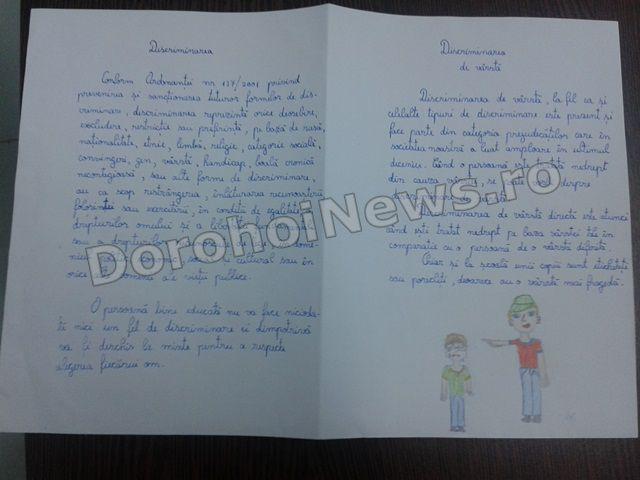 Discriminarea
Conform Ordonanței nr 137/2001 privind
prevenirea și sancționarea tuturor formelor de dis-
criminare, discriminarea reprezintă orice deosebire,
excludere, restricție sau preferință, pe bază de rasă,
naționalitate, etnie, limbă, religie, categorie socială,
convingeri, gen, vârstă, handicap, boală cronică
necontagioasă, sau alte forme de discriminare,
au ca scop restrângerea, înlăturarea recunoașterii
folosinței sau exercitării, în condiții de egalitate
drepturilor omului și a libertăților
sau a drepturilor
politic, economic, social și cultural sau în
orice domenii ale vieții publice.
O persoană bine educată nu va face nicioda-
tă nici un fel de discriminare ci dimpotrivă
va fi deschis la minte pentru a respecta
alegerea fiecărui om.
Discriminarea
de vârstă
Discriminarea de vârstă, la fel ca și
celelalte tipuri de discriminare este prezent și
face parte din categoria prejudecăților care în
societatea noastră a luat amploare în ultimul
deceniu. Când o persoană este tratată nedrept
din cauza vârstei, se poate vorbi despre
discriminare
Discriminarea de vârstă directă este atunci
când ești tratat nedrept pe baza vârstei tale în
comparație cu o persoană de o vârstă diferită.
Chiar și la școală unii copii sunt etichetați
sau porecliți, deoarece au o vârstă mai fragedă.
DorohoiNews.ro